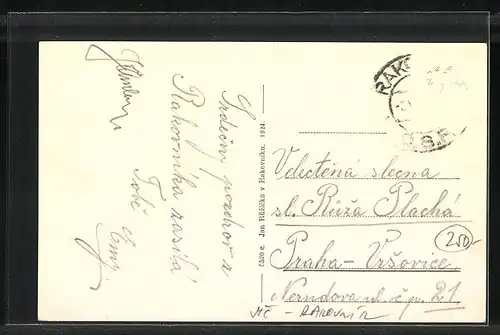 Srdečný pozdrav z
Rakovníka zasílá
Tobě
4520 c. Jan Růžička v Rakovníku. 1924.
RAK
Velectěná slečna
sl. Růža Plachá
Praha - Vršovice
Nerudova ul. č.p. 21
250,-
MČ - RAKOVNÍK